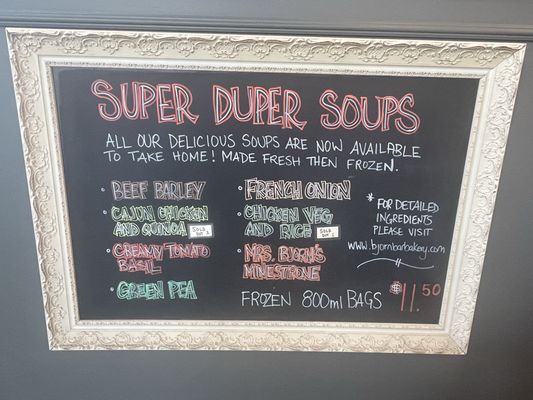 SUPER DUPER SOUPS
ALL OUR DELICIOUS SOUPS ARE NOW AVAILABLE
TO TAKE HOME! MADE FRESH THEN FROZEN.
BEEF BARLEY
CAJUN CHICKEN
AND QUINOA
SOLD
OUT
CREAMY TOMATO
BASIL
GREEN PEA
FRENCH ONION
CHICKEN VEG
AND RICE
SOLD
OUT
MRS. BJORN'S
MINESTRONE
FROZEN 800ml BAGS $11.50
* FOR DETAILED
INGREDIENTS
PLEASE VISIT
www.bjornbarbakery.com